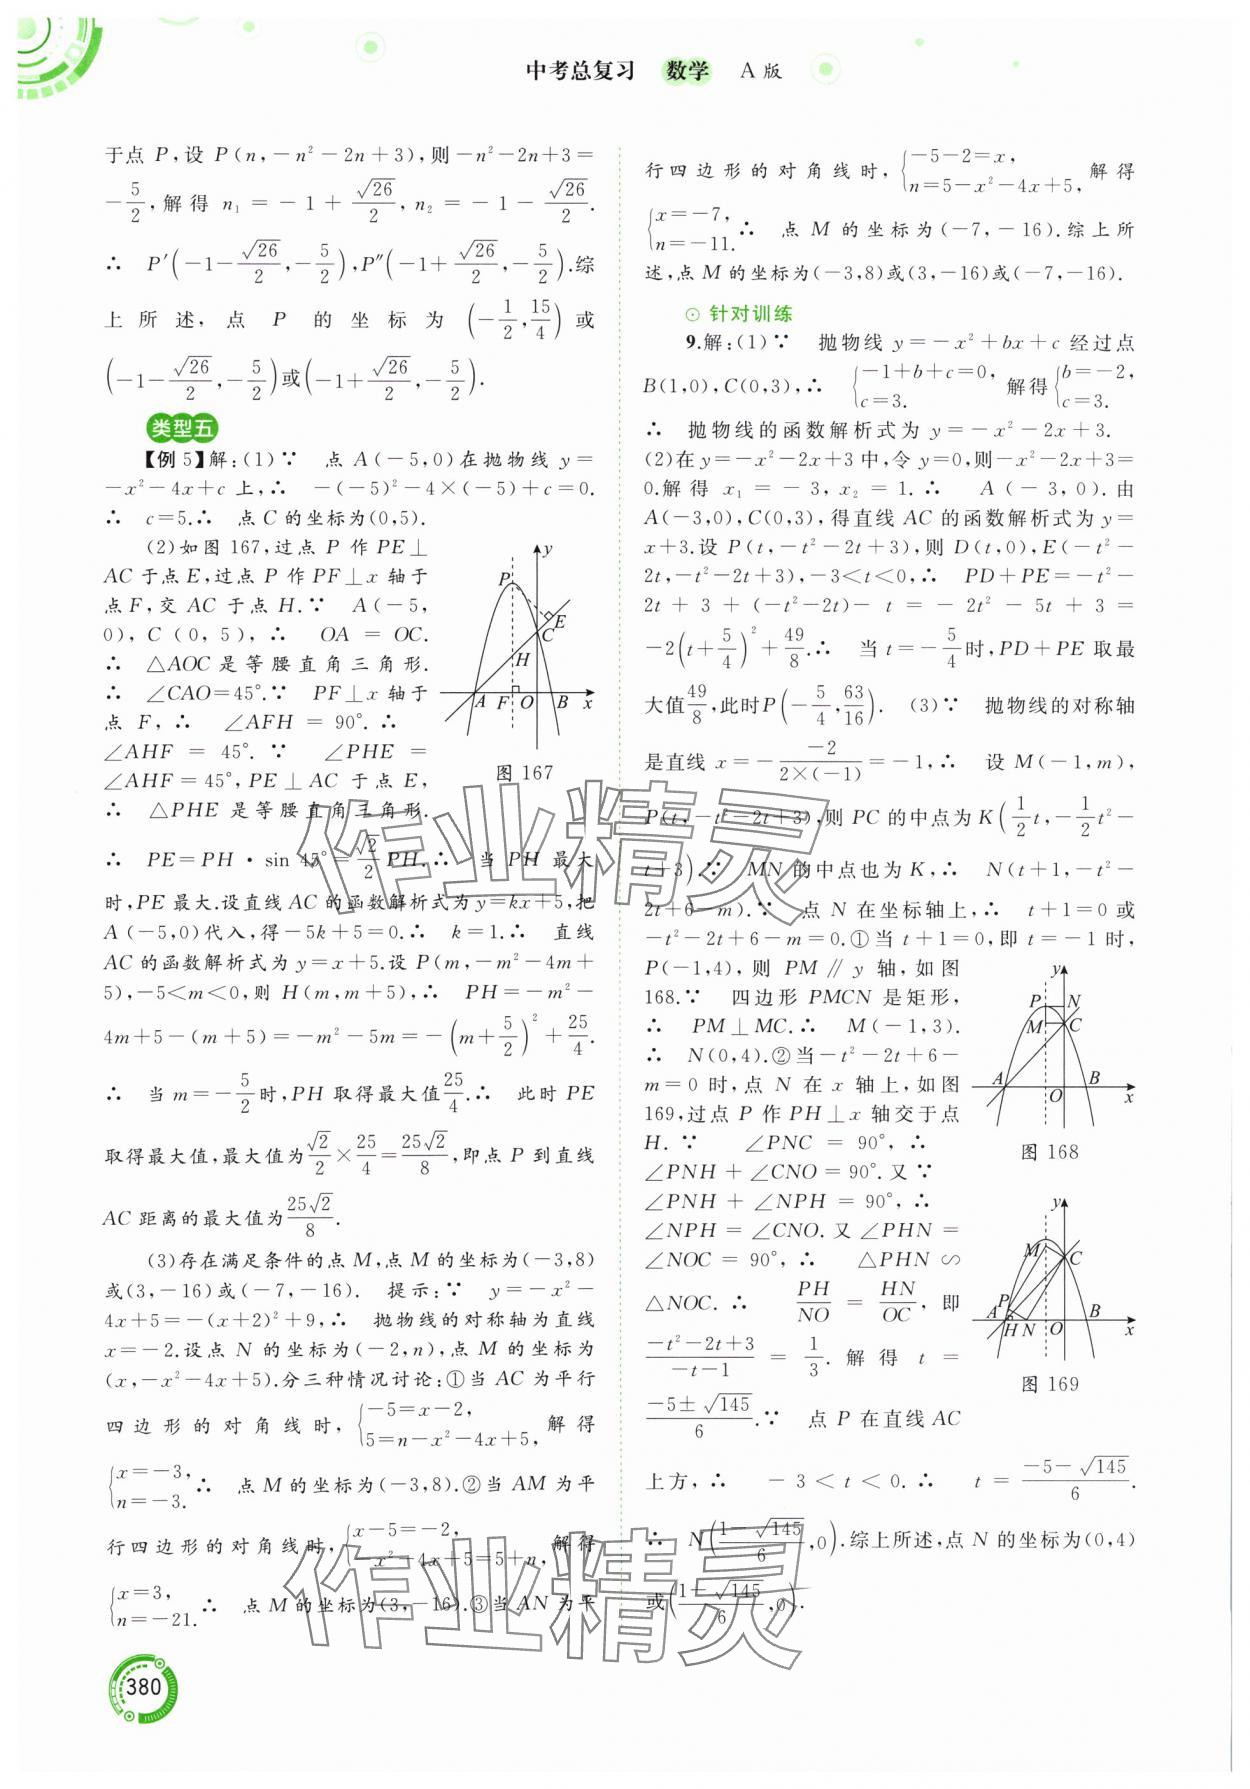 中考总复习 数学 A版
于点 P,设 P(n,-n²-2n+3),则-n²-2n+3=
-5/2,解得 n₁=-1+√26/2,n₂=-1-√26/2.
∴ P′(-1-√26/2,-5/2),P″(-1+√26/2,-5/2).综
上所述,点 P 的坐标为(-1/2,15/4)或
(-1-√26/2,-5/2)或(-1+√26/2,-5/2).
类型五
【例5】解:(1)∵ 点 A(-5,0)在抛物线 y=
-x²-4x+c 上,∴ -(-5)²-4×(-5)+c=0.
∴ c=5.∴ 点 C 的坐标为(0,5).
(2)如图 167,过点 P 作 PE⊥
AC 于点 E,过点 P 作 PF⊥x 轴于
点 F,交 AC 于点 H.∵ A(-5,
0),C(0,5),∴ OA=OC.
∴ △AOC 是等腰直角三角形.
∴ ∠CAO=45°.∵ PF⊥x 轴于
点 F,∴ ∠AFH=90°.∴
∠AHF=45°.∵ ∠PHE=
∠AHF=45°,PE⊥AC 于点 E,
∴ △PHE 是等腰直角三角形.
y
P
E
C
H
A F O B x
图 167
∴ PE=PH·sin 45°=√2/2 PH.∴ 当 PH 最大
时,PE 最大.设直线 AC 的函数解析式为 y=kx+5,把
A(-5,0)代入,得-5k+5=0.∴ k=1.∴ 直线
AC 的函数解析式为 y=x+5.设 P(m,-m²-4m+
5),-5<m<0,则 H(m,m+5),∴ PH=-m²-
4m+5-(m+5)=-m²-5m=-(m+5/2)²+25/4.
∴ 当 m=-5/2时,PH 取得最大值25/4.∴ 此时 PE
取得最大值,最大值为√2/2×25/4=25√2/8,即点 P 到直线
AC 距离的最大值为25√2/8.
(3)存在满足条件的点 M,点 M 的坐标为(-3,8)
或(3,-16)或(-7,-16). 提示:∵ y=-x²-
4x+5=-(x+2)²+9,∴ 抛物线的对称轴为直线
x=-2.设点 N 的坐标为(-2,n),点 M 的坐标为
(x,-x²-4x+5).分三种情况讨论:①当 AC 为平行
四边形的对角线时,{-5=x-2, 5=n-x²-4x+5,解得
{x=-3, n=-3.∴ 点 M 的坐标为(-3,8).②当 AM 为平
行四边形的对角线时,{x-5=-2, -x²-4x+5=5+n,解得
{x=3, n=-21.∴ 点 M 的坐标为(3,-16).③当 AN 为平
380
行四边形的对角线时,{-5-2=x, n=5-x²-4x+5,解得
{x=-7, n=-11.∴ 点 M 的坐标为(-7,-16).综上所
述,点 M 的坐标为(-3,8)或(3,-16)或(-7,-16).
针对训练
9.解:(1)∵ 抛物线 y=-x²+bx+c 经过点
B(1,0),C(0,3),∴ {-1+b+c=0, c=3. 解得{b=-2, c=3.
∴ 抛物线的函数解析式为 y=-x²-2x+3.
(2)在 y=-x²-2x+3 中,令 y=0,则-x²-2x+3=
0.解得 x₁=-3,x₂=1.∴ A(-3,0).由
A(-3,0),C(0,3),得直线 AC 的函数解析式为 y=
x+3.设 P(t,-t²-2t+3),则 D(t,0),E(-t²-
2t,-t²-2t+3),-3<t<0,∴ PD+PE=-t²-
2t+3+(-t²-2t)-t=-2t²-5t+3=
-2(t+5/4)²+49/8.∴ 当 t=-5/4时,PD+PE 取最
大值49/8,此时P(-5/4,63/16). (3)∵ 抛物线的对称轴
是直线 x=--2/2×(-1)=-1,∴ 设 M(-1,m),
P(t,-t²-2t+3),则 PC 的中点为 K(1/2t,-1/2t²-
t+3).∵ MN 的中点也为 K,∴ N(t+1,-t²-
2t+6-m).∵ 点 N 在坐标轴上,∴ t+1=0 或
-t²-2t+6-m=0.①当 t+1=0,即 t=-1 时,
P(-1,4),则 PM∥y 轴,如图
168.∵ 四边形 PMCN 是矩形,
∴ PM⊥MC.∴ M(-1,3).
∴ N(0,4).②当-t²-2t+6-
m=0 时,点 N 在 x 轴上,如图
169,过点 P 作 PH⊥x 轴交于点
H.∵ ∠PNC=90°,∴
∠PNH+∠CNO=90°.又∵
∠PNH+∠NPH=90°,∴
∠NPH=∠CNO.又∠PHN=
∠NOC=90°,∴ △PHN∽
△NOC.∴ PH/NO=HN/OC,即
-t²-2t+3/-t-1=1/3.解得 t=
-5±√145/6.∵ 点 P 在直线 AC
y
P N
M C
A O B x
图 168
y
M C
P
A H N O B x
图 169
上方,∴ -3<t<0.∴ t=-5-√145/6.
∴ N(1-√145/6,0).综上所述,点 N 的坐标为(0,4)
或(1-√145/6,0).
作业精灵
作业精灵